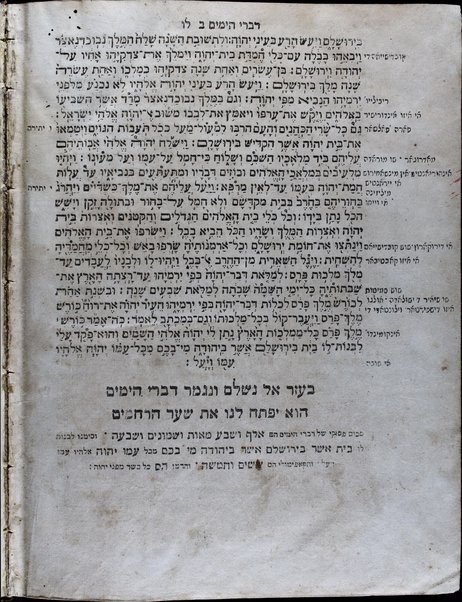 דברי הימים ב לו
בירושלם ויעש הרע בעיני יהוה: ולתשובת השנה שלח המלך נבוכדנאצר
ויבאהו בבלה עם־כלי חמדת בית־יהוה וימלך את־צדקיהו אחיו על־
יהודה וירושלם: בן־עשרים ואחת שנה צדקיהו במלכו ואחת עשרה
שנה מלך בירושלם: ויעש הרע בעיני יהוה אלהיו לא נכנע מלפני
ירמיהו הנביא מפי יהוה: וגם במלך נבוכדנאצר מרד אשר השביעו
באלהים ויקש את־ערפו ויאמץ את־לבבו משוב אל־יהוה אלהי ישראל:
גם כל־שרי הכהנים והעם הרבו למעול־מעל ככל תעבות הגוים ויטמאו
את־בית יהוה אשר הקדיש בירושלם: וישלח יהוה אלהי אבותיהם
עליהם ביד מלאכיו השכם ושלוח כי־חמל על־עמו ועל־מעונו: ויהיו
מלעבים במלאכי האלהים ובוזים דבריו ומתעתעים בנביאיו עד עלות
חמת־יהוה בעמו עד־לאין מרפא: ויעל עליהם את־מלך כשדיים ויהרג
בחוריהם בחרב בבית מקדשם ולא חמל על־בחור ובתולה זקן וישש
הכל נתן בידו: וכל כלי בית האלהים הגדלים והקטנים ואצרות בית
יהוה ואצרות המלך ושריו הכל הביא בבל: וישרפו את־בית האלהים
וינתצו את־חומת ירושלם וכל־ארמנותיה שרפו באש וכל־כלי מחמדיה
להשחית: ויגל השארית מן־החרב אל־בבל ויהיו־לו ולבניו לעבדים עד־
מלך מלכות פרס: למלאת דבר־יהוה בפי ירמיהו עד־רצתה הארץ את־
שבתותיה כל־ימי השמה שבתה למלאות שבעים שנה: ובשנת אחת
לכורש מלך פרס לכלות דבר־יהוה בפי ירמיהו העיר יהוה את־רוח כורש
מלך־פרס ויעבר־קול בכל־מלכותו וגם־במכתב לאמר: כה־אמר כורש
מלך פרס כל־ממלכות הארץ נתן לי יהוה אלהי השמים והוא־פקד עלי
לבנות־לו בית בירושלם אשר ביהודה מי־בכם מכל־עמו יהוה אלהיו
עמו ויעל:
בעזר אל נשלם ונגמר דברי הימים
הוא יפתח לנו את שער הרחמים
סכום פסוקי של דברי הימים הם אלף ושבע מאות ושמונים ושבעה · וסימנו לבנות
לו בית אשר בירושלים אשר ביהודה מי בכם מכל עמו יהוה אלהיו עמו
ויעל · עשים וחמשה · הס כל בשר מפני יהוה: